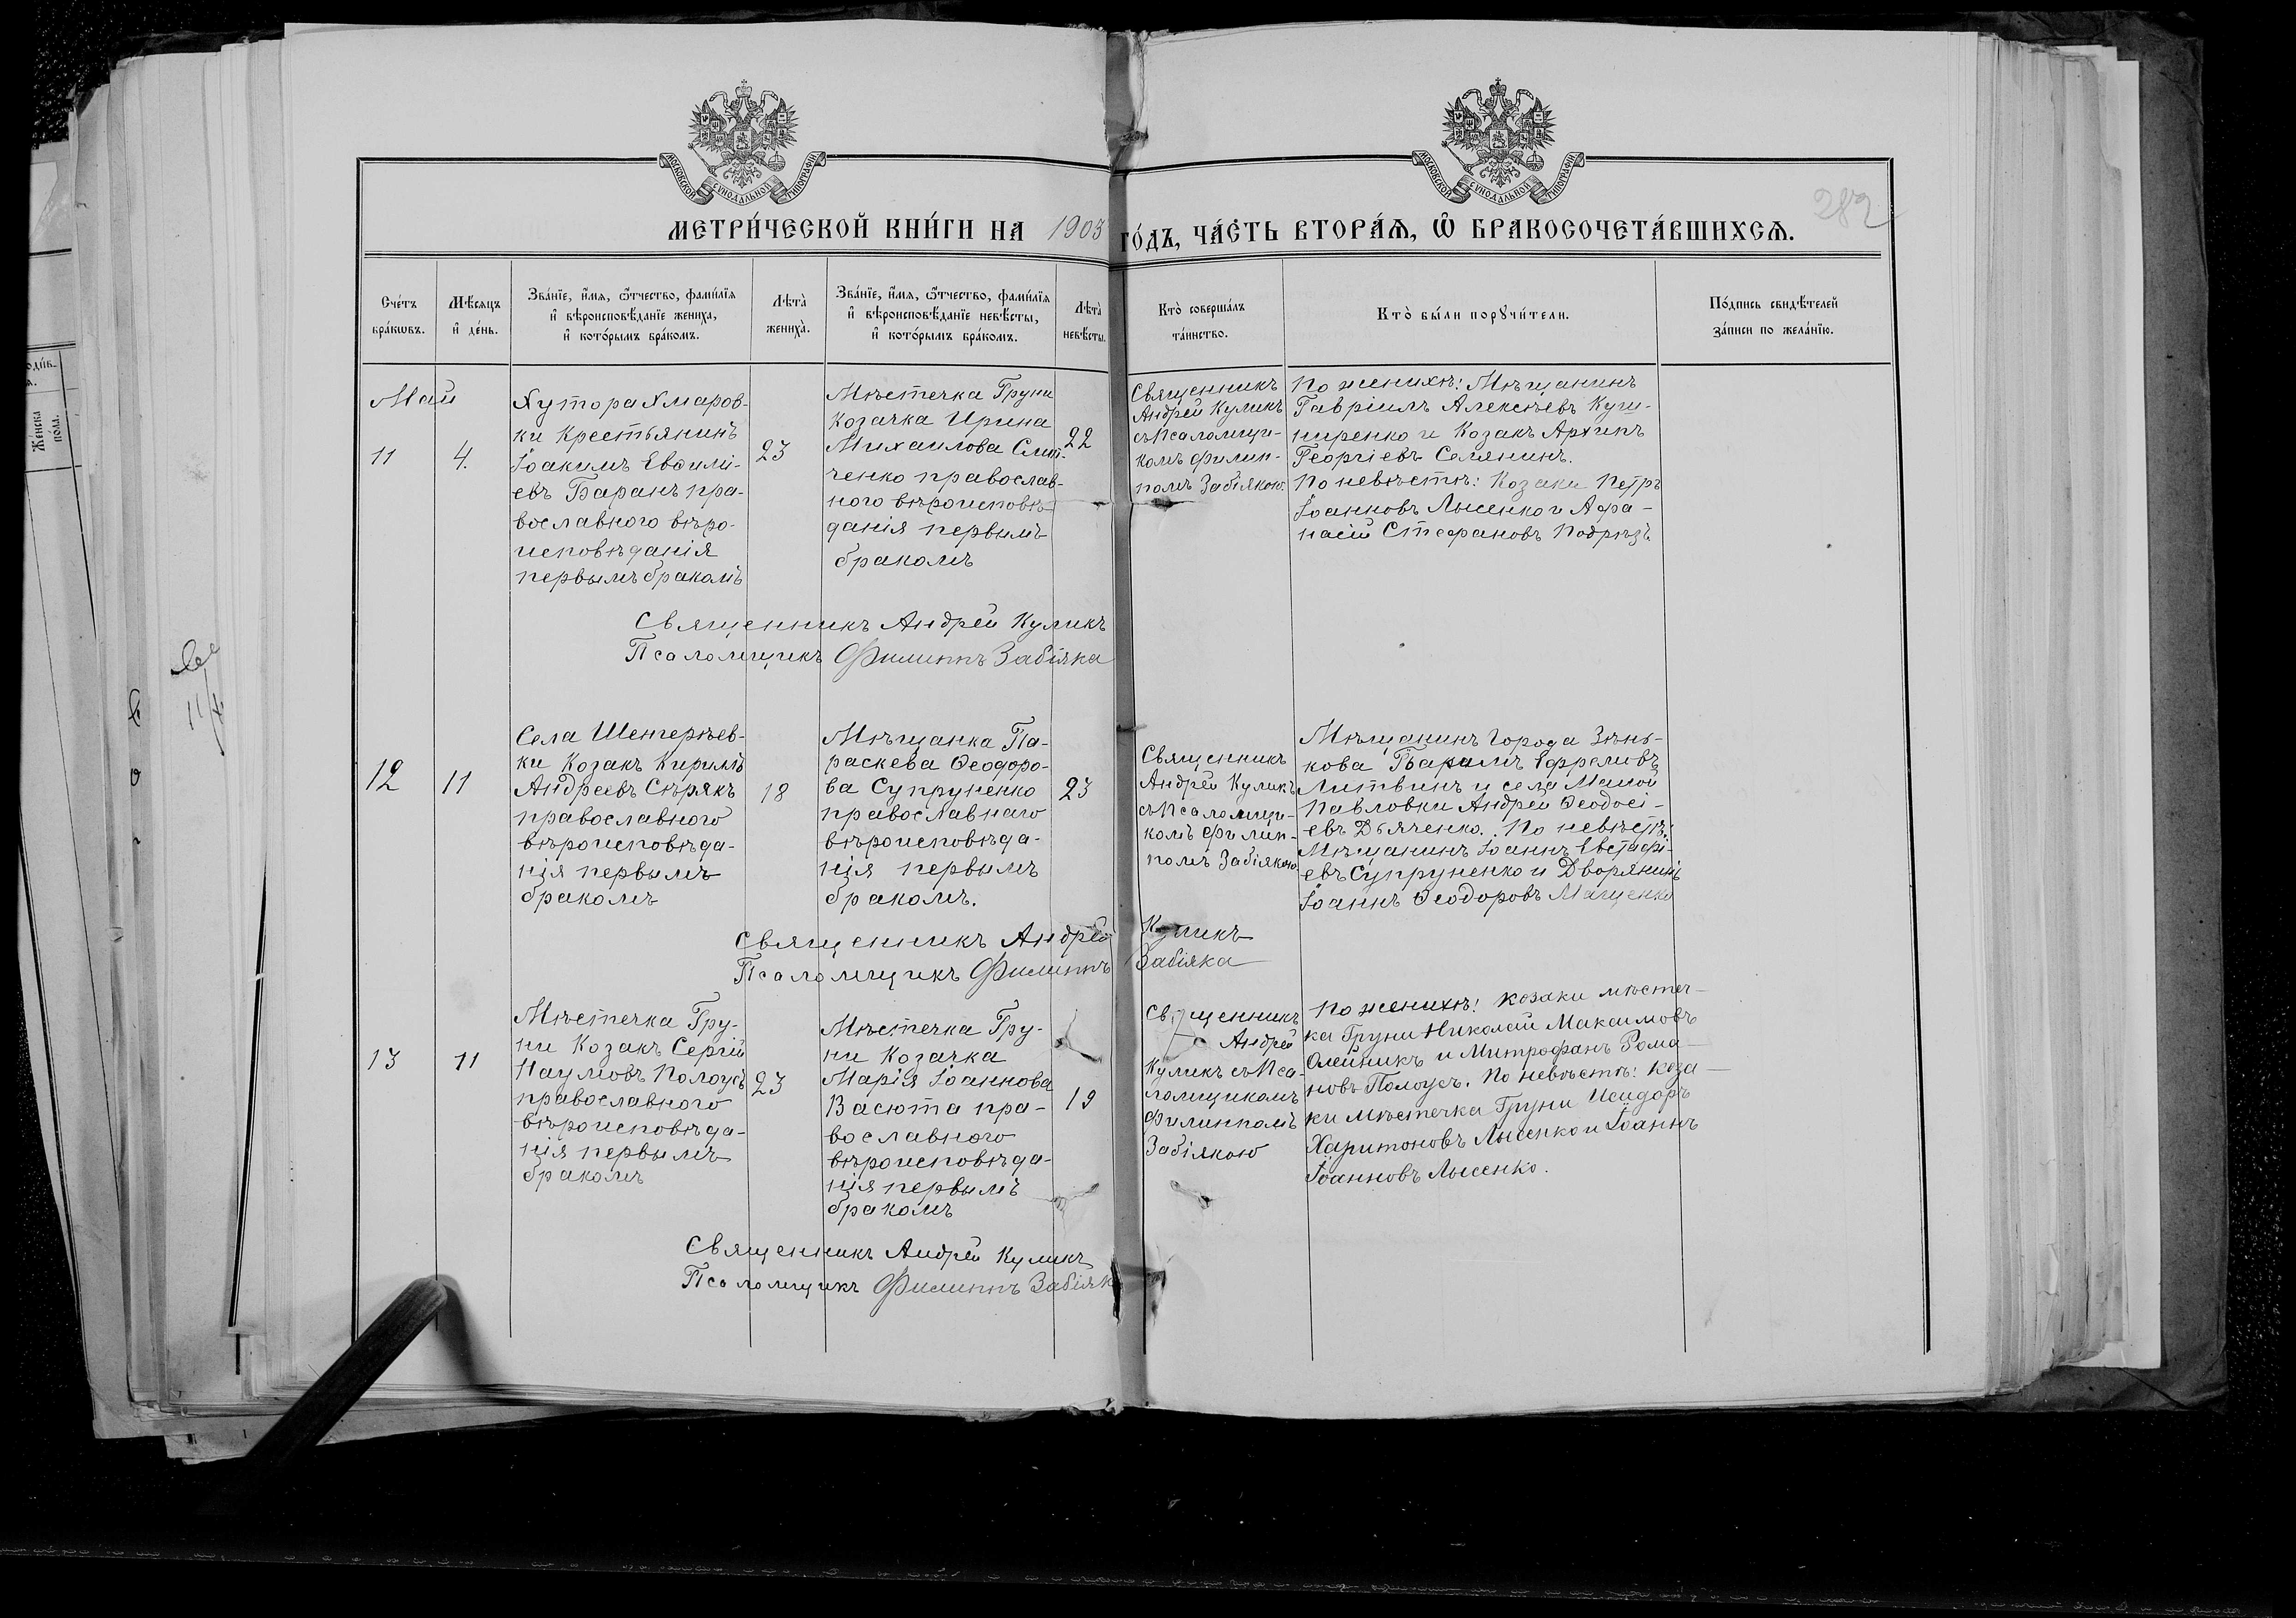 МОСКОВСКОЙ СУНОДАЛЬНОЙ ТИПОГРАФІИ
МОСКОВСКОЙ СУНОДАЛЬНОЙ ТИПОГРАФІИ
282
МЕТРИ́ЧЕСКОЙ КНИ́ГИ НА 1903 ГО́ДЪ, ЧА́СТЬ ВТОРА́Ѧ, Ѽ БРАКОСОЧЕТА́ВШИХСѦ.
Сче́тъ
бра́кѡвъ.
Мѣ́сяцъ
и҆ де́нь.
Зва́нїе, и҆́мя, ѻ҆́тчество, фами́лїя
и҆ вѣроисповѣ́данїе жениха̀,
и҆ кото́рымъ бра́комъ.
Лѣта̀
жениха̀.
Зва́нїе, и҆́мя, ѻ҆́тчество, фами́лїя
и҆ вѣроисповѣ́данїе невѣ́сты,
и҆ кото́рымъ бра́комъ.
Лѣта̀
невѣ́сты.
Кто̀ соверша́лъ
та́инство.
Кто̀ бы́ли порꙋчи́тели.
По́дпись свидѣ́телей
за́писи по жела́нїю.
Же́нска
по́ла.
Май
11
4.
Хутора Хмаров-
ки Крестьянинъ
Іоакимъ Евсилі-
евъ Баранъ пра-
вославного вѣро-
исповѣданія
первымъ бракомъ
23
Мѣстечка Груни
Козачка Ирина
Михаилова
ченко православ-
ного вѣроисповѣ-
данія первымъ
бракомъ
22
Священникъ
Андрей Куликъ
съ Псаломщи-
комъ Филип-
помъ Забіякою.
По женихѣ: Мѣщанинъ
Гавріилъ Алексѣевъ Куш-
ниренко и Козакъ Архипъ
Георгіевъ Селянинъ.
По невѣстѣ: Козаки Петръ
Іоанновъ Лысенко и Афа-
насій Стефановъ Подрѣзъ.
Священникъ Андрей Куликъ
Псаломщикъ Филиппъ Забіяка
12
11
Села
ки Козакъ Кирилъ
Андреевъ Сѣрякъ
православного
вѣроисповѣда-
нія первымъ
бракомъ
18
Мѣщанка Па-
раскева Ѳеодоро-
ва Супруненко
православнаго
вѣроисповѣда-
нія первымъ
бракомъ.
23
Священникъ
Андрей Куликъ
съ Псаломщи-
комъ Филип-
помъ Забіякою
Мѣщанинъ Города Зѣнь-
кова Ефремовъ
Литвинъ и села Малой
Павловки Андрей Ѳеодосі-
евъ Дьяченко. По невѣстѣ:
Мѣщанинъ Іоаннъ Евстафі-
евъ Супруненко и Дворянинъ
Іоаннъ Ѳеодоровъ Мащенко
Священникъ Андрей Куликъ
Псаломщикъ Филиппъ Забіяка
13
11
Мѣстечка Гру-
ни Козакъ Сергій
Наумовъ Полоусъ
православного
вѣроисповѣда-
нія первымъ
бракомъ
23
Мѣстечка Гру-
ни Козачка
Марія Іоаннова
Васюта пра-
вославного
вѣроисповѣда-
нія первымъ
бракомъ
19
Священникъ
Андрей
Куликъ съ Пса-
ломщикомъ
Филиппомъ
Забіякою
По женихѣ: козаки мѣстеч-
ка Груни Николай Максимовъ
Олейникъ и Митрофанъ Рома-
новъ Полоусъ. По невѣстѣ: коза-
ки мѣстечка Груни Исидоръ
Харитоновъ Лысенко и Іоаннъ
Іоанновъ Лысенко.
Священникъ Андрей Куликъ
Псаломщикъ Филиппъ Забіяк